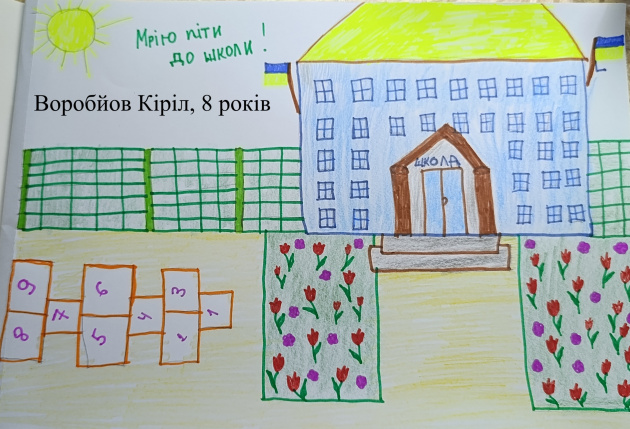 Мрію піти
до школи!
Воробйов Кіріл, 8 років
ШКОЛА
9 6 3
7 4 1
8 5 2